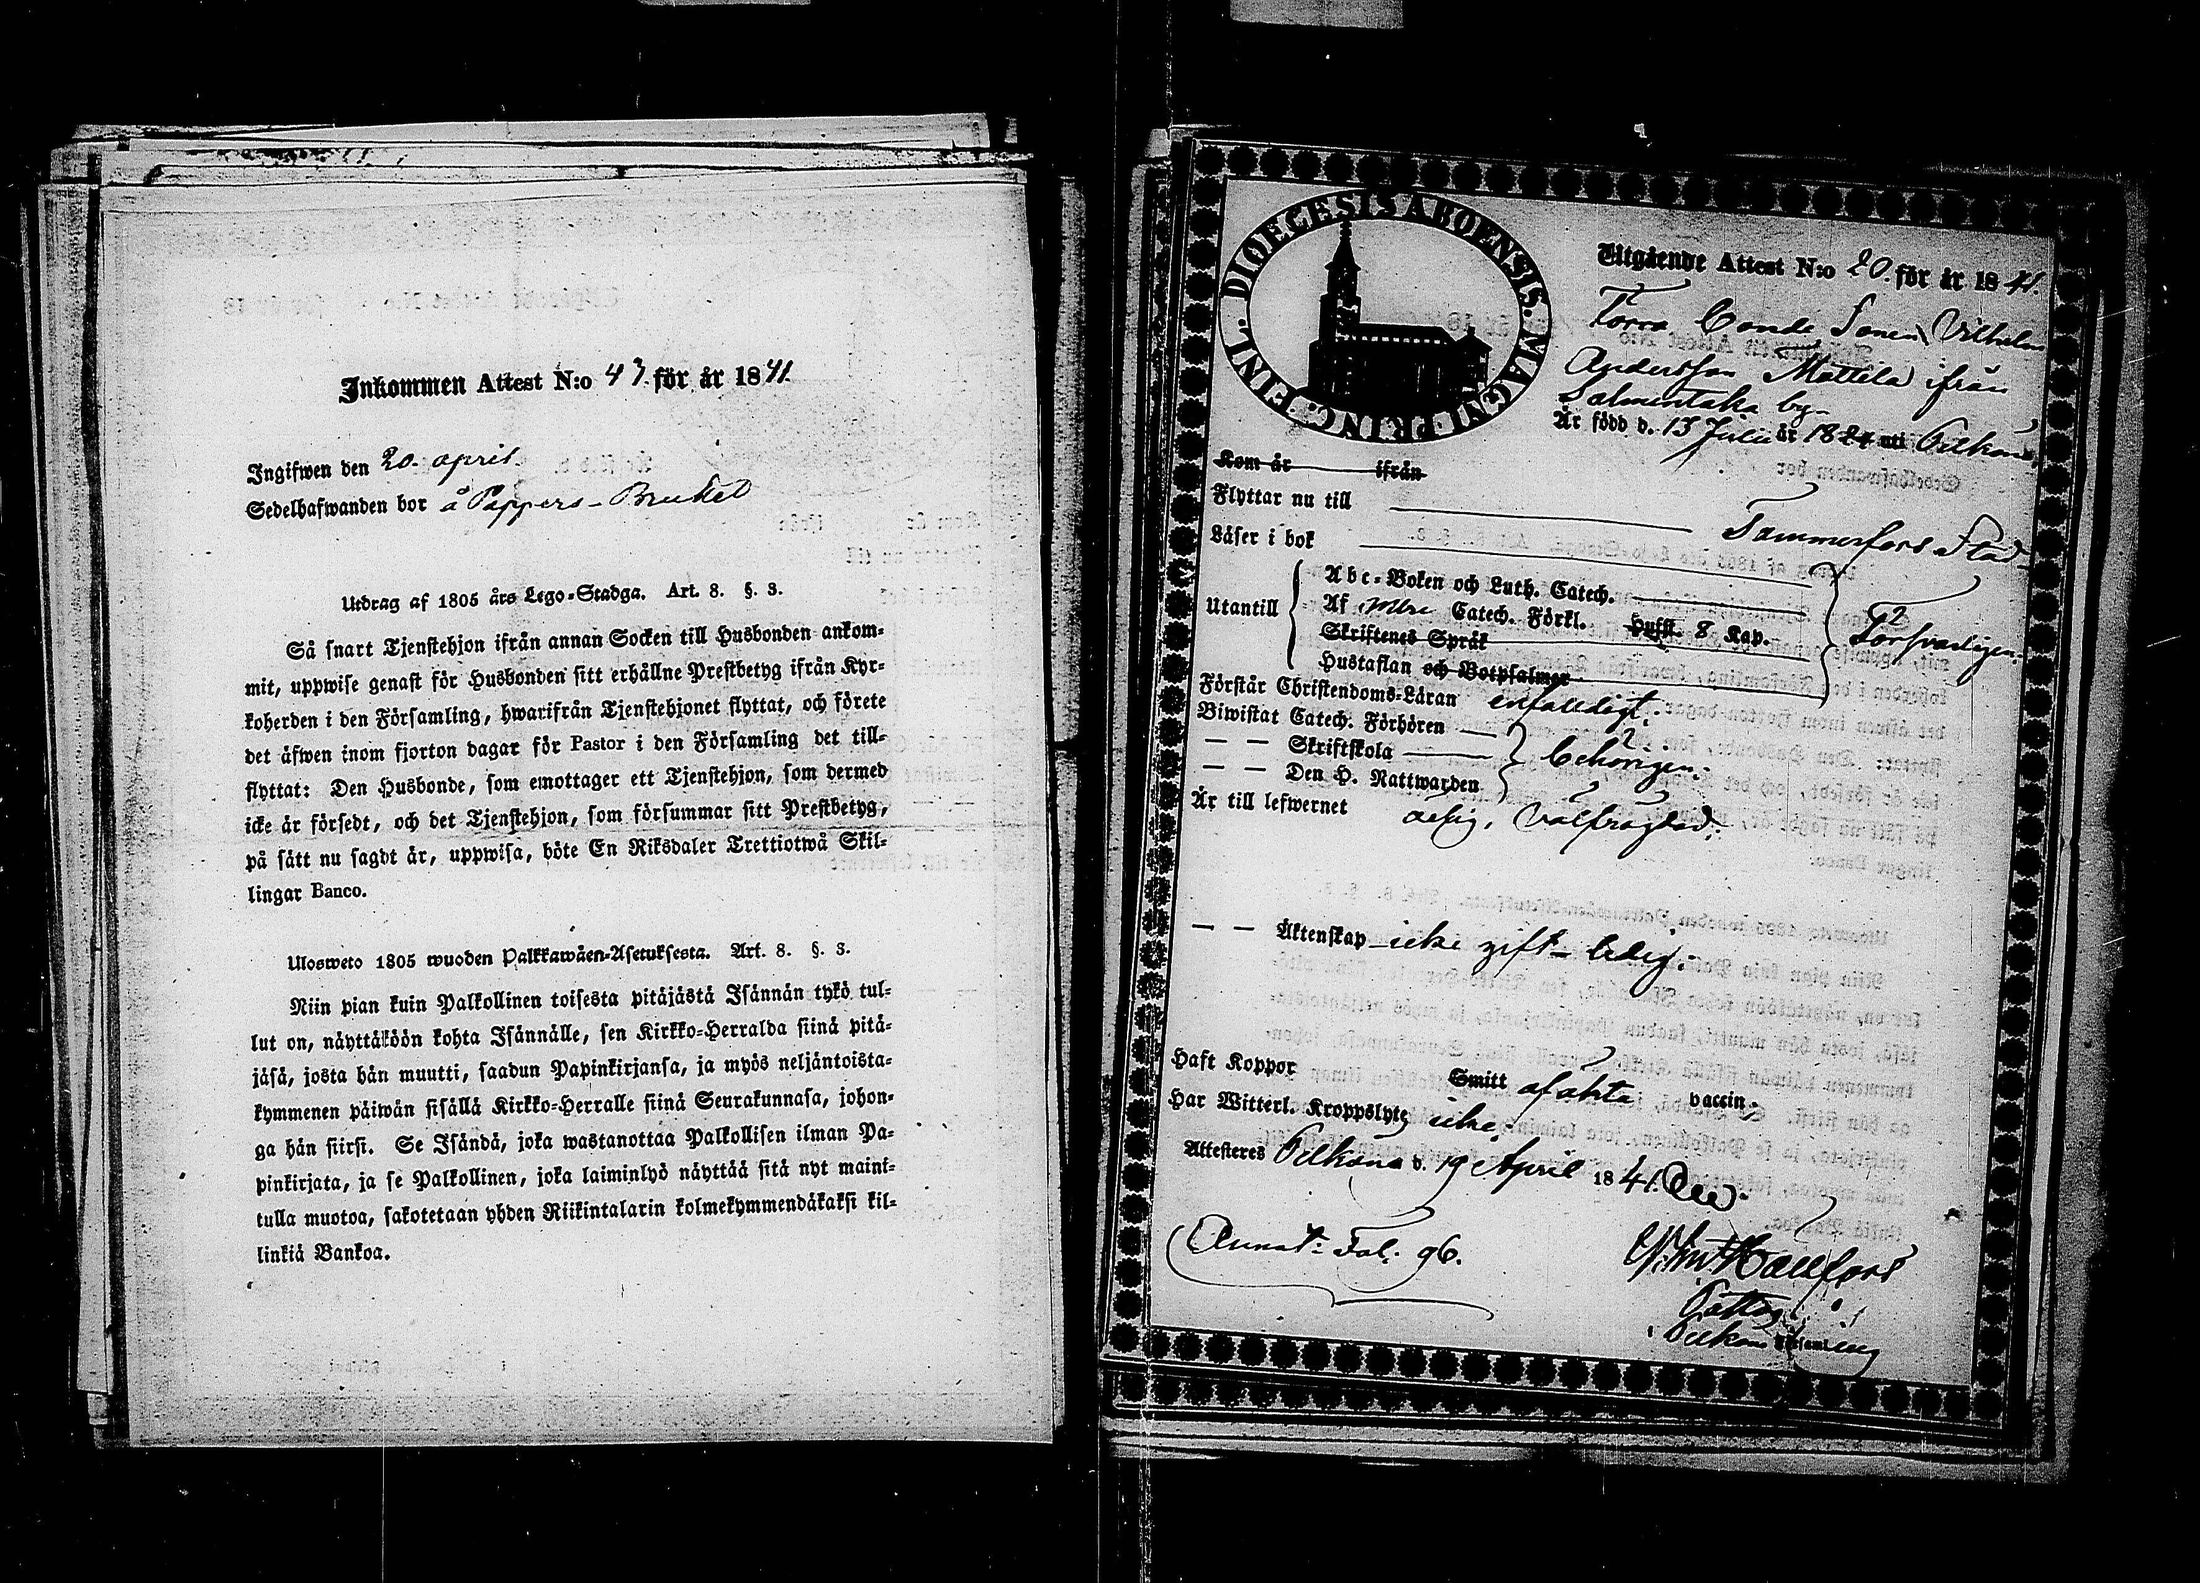 Inkommen Attest N:o 43 för år 1841.
Ingifwen den 20. april.
Sedelhafwanden bor å Pappers-Bruket
Utdrag af 1805 års Lego-Stadga. Art. 8. §. 3.
Så snart Tjenstehjon ifrån annan Socken till Husbonden ankom-
mit, uppwise genast för Husbonden sitt erhållne Prestbetyg ifrån Kyr-
koherden i den Församling, hwarifrån Tjenstehjonet flyttat, och förete
det äfwen inom fjorton dagar för Pastor i den Församling det till-
flyttat: Den Husbonde, som emottager ett Tjenstehjon, som dermed
icke är försedt, och det Tjenstehjon, som försummar sitt Prestbetyg,
på sätt nu sagdt är, uppwisa, böte En Riksdaler Trettiotwå Skil-
lingar Banco.
Ulosweto 1805 wuoden Palkkawäen-Asetuksesta. Art. 8. §. 3.
Niin pian kuin Palkollinen toisesta pitäjästä Isännän tykö tul-
lut on, näyttäköön kohta Isännälle, sen Kirkko-Herralda siinä pitä-
jäsä, josta hän muutti, saadun Papinkirjansa, ja myös neljäntoista-
kymmenen päiwän sisällä Kirkko-Herralle siinä Seurakunnasa, johon-
ga hän siirsi. Se Isändä, joka wastanottaa Palkollisen ilman Pa-
pinkirjata, ja se Palkollinen, joka laiminlyö näyttää sitä nyt maini-
tulla muotoa, sakotetaan yhden Riikintalarin kolmekymmendäkaksi kil-
linkiä Bankoa.
DIOECESIS ABOENSIS. MAGNI PRINC. FINL.
Utgående Attest N:o 20. för år 1841.
Torra Bonde Sonen Vilhelm
Andersson Mattila ifrån
Salmentaka by
Är född d. 13 Julii år 1824 uti Pelkäne.
Kom år ifrån
Flyttar nu till Tammerfors Stad
Läser i bok
Utantill
Abc-Boken och Luth. Catech.
Af Catech. Förkl. Hufst. 8 Kap.
Skriftenes Språk
Hustaflan och Botpsalmer
Försvarligen.
Förstår Christendoms-Läran enfaldigt.
Biwistat Catech. Förhören
— — Skriftskola
— — Den H. Nattwarden
behörigen.
Är till lefwernet ärlig, välfrägdad.
— — Äktenskap icke gift - ledig.
Haft Koppor Smitt af äkta vaccin.
Har Witterl. Kroppslyte icke.
Attesteres Pelkäne d. 19 April 1841.
Annot: Fol. 96.
Hällfors
Pelkäne